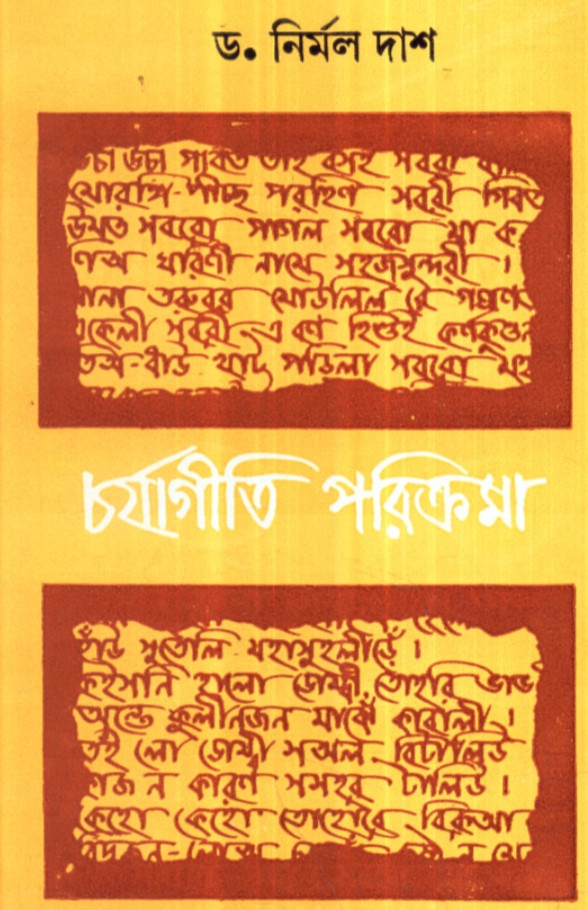 ড. নির্মল দাশ
উচা উচা পাবত তহি বসই সবরী
মোরঙ্গি-পীচ্ছ পরহিণ সবরী গিবত
উমত সবরো পাগল সবরো মা ক
ণিঅ ঘরিণী নামে সহজসুন্দরী ।
ণানা তরুবর মোউলিল রে গঅণ
একেলী সবরী এ বণ হিণ্ডই কর্ণকুণ্ডল
তিঅ-ধাউ খাট পড়িলা সবরো মহা
চর্যাগীতি পরিক্রমা
হাঁউ সুতেলি মহাসুহলীড়েঁ ।
কইসনি হালো ডোম্বী তোহরি ভাভ
অন্তে কুলীনজন মাঝেঁ কাবালী ।
তঁই লো ডোম্বী সঅল বিটালিউ
কাজ ন কারণ সসহর টালিউ ।
কেহো কেহো তোহোরে বিরুআ